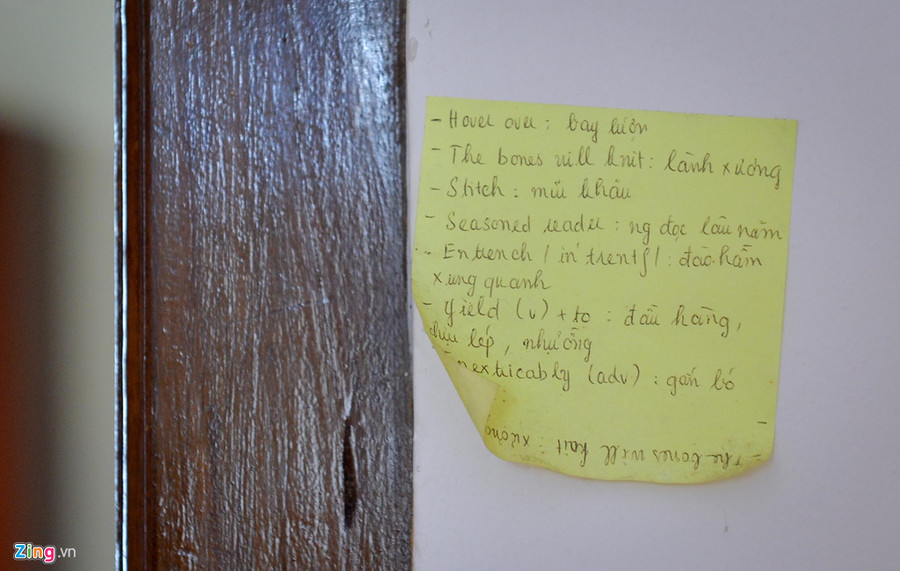 - Hover over : bay lượn
- The bones will knit : lành xương
- Stitch : mũi khâu
- Seasoned reader : ng đọc lâu năm
- Entrench / in'trentʃ / : đào hầm
xung quanh
- Yield (v) + to : đầu hàng,
chịu lép, nhường
nextricably (adv) : gắn bó
-
- The bones will knit : xương
Zing.vn